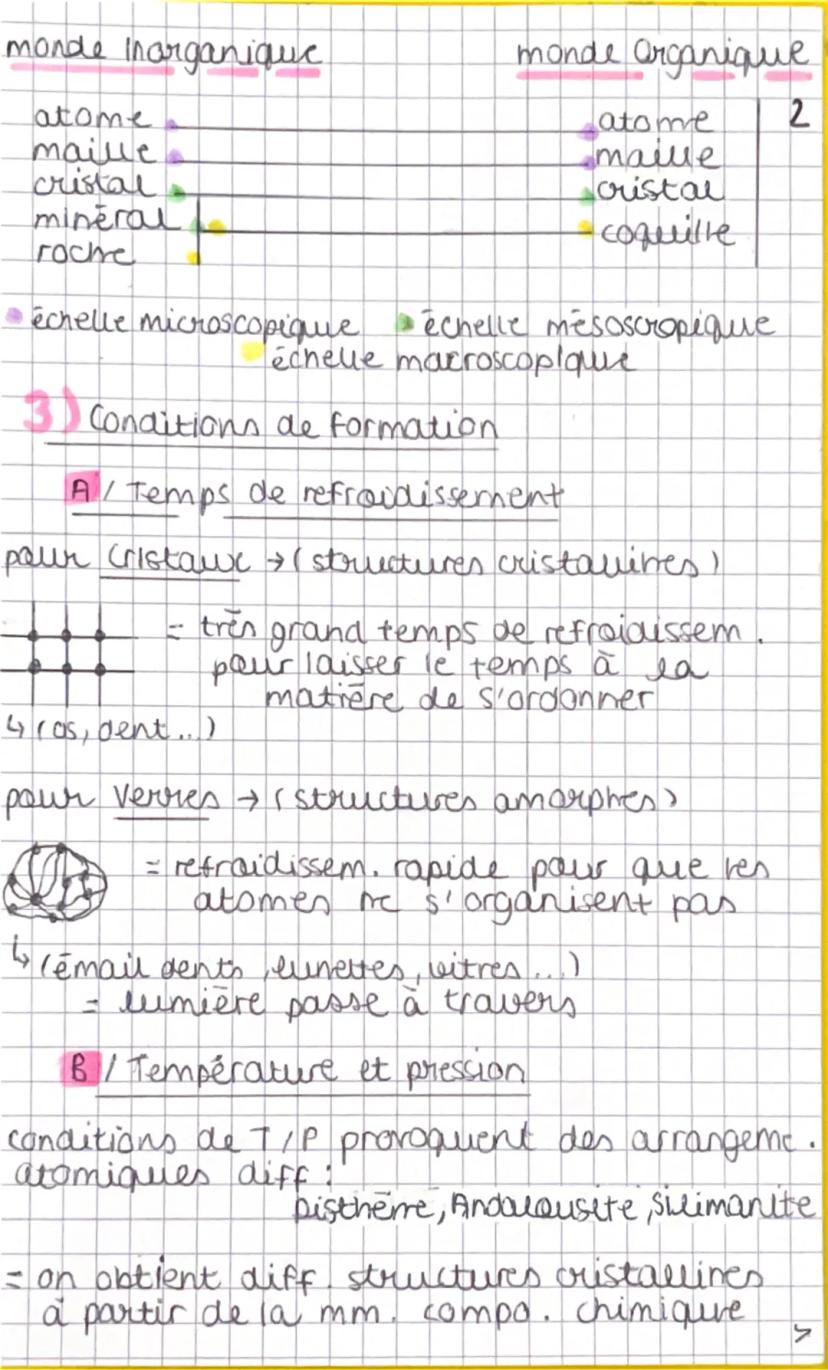 monde Inorganique monde organique
atome atome 2
maille maille
cristal cristal
minéral coquille
roche
échelle microscopique échelle mésoscropique
échelle macroscopique
3) Conditions de formation
A / Temps de refroidissement
pour cristaux → (structures cristallines)
= très grand temps de refroidissem.
pour laisser le temps à la
matière de s'ordonner
↳ (os, dent...)
pour verres → (structures amorphes)
= refroidissem. rapide pour que les
atomes ne s'organisent pas
↳ (émail dents, lunettes, vitres...)
= lumière passe à travers
B / Température et pression
conditions de T/P provoquent des arrangeme.
atomiques diff :
Disthène, Andalousite, Silimanite
= on obtient diff. structures cristallines
à partir de la mm. compo. chimique
>